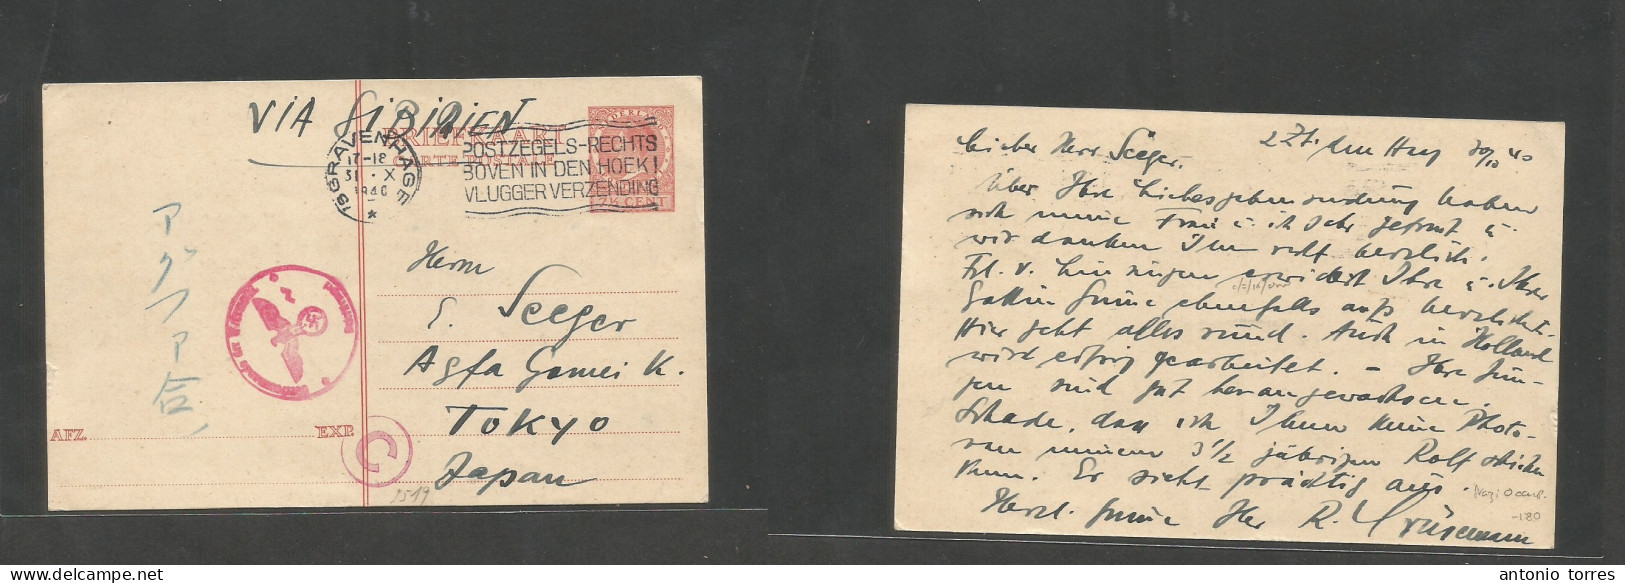 VIA SIBIRIEN
BRIEFKAART
CARTE POSTALE
NEDERLAND
7½ CENT
'SGRAVENHAGE
17-18
31 X
1940
POSTZEGELS-RECHTS
BOVEN IN DEN HOEK!
VLUGGER VERZENDING
Herrn
E. Seeger
Agfa Gomei K.
TOKYO
Japan
アグファ合
AFZ.
EXP.
C
1519
z Zt. den Haag 30/10 40
Lieber Herr Seeger.
Über Ihre Liebesgabensendung haben
sich meine Frau u. ich sehr gefreut u.
wir danken Ihnen recht herzlich.
Frl. v. erwidert Ihre u. Ihrer
Gattin Grüsse ebenfalls aufs herzlichste.
Hier geht alles rund. Auch in Holland
wird eifrig gearbeitet. – Ihre Jun-
gen sind gut herangewachsen.
Schade, dass ich Ihnen keine Photo-
von meinem 3½ jährigen Rolf schicken
kann. Er sieht prächtig aus.
Nazi Occup.
-180
Herzl. Grüsse Ihr R.
antonio torres